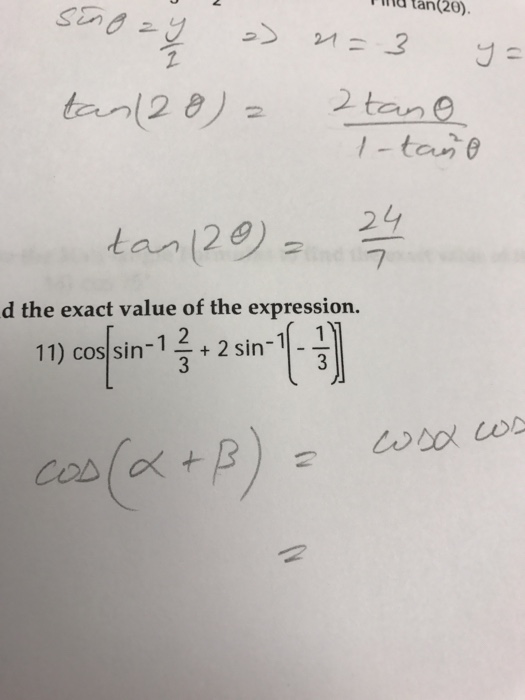 Find tan(2θ).
sinθ = y/2 => x = 3 y =
tan(2θ) = 2tanθ/(1-tan²θ)
tan(2θ) = 24/7
d the exact value of the expression.
11) cos[sin⁻¹ 2/3 + 2 sin⁻¹(-1/3)]
cos(α+β) = cosα cos
=